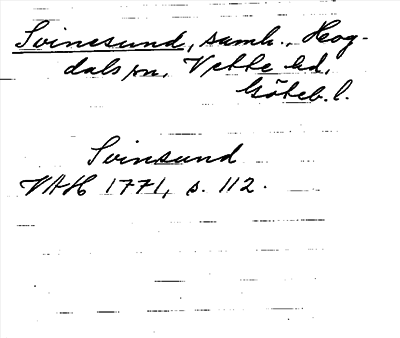 Svinesund, samh., Hog-
dals sn, Vette hd,
Göteb. l.
Svinsund
VAH 1771, s. 112.